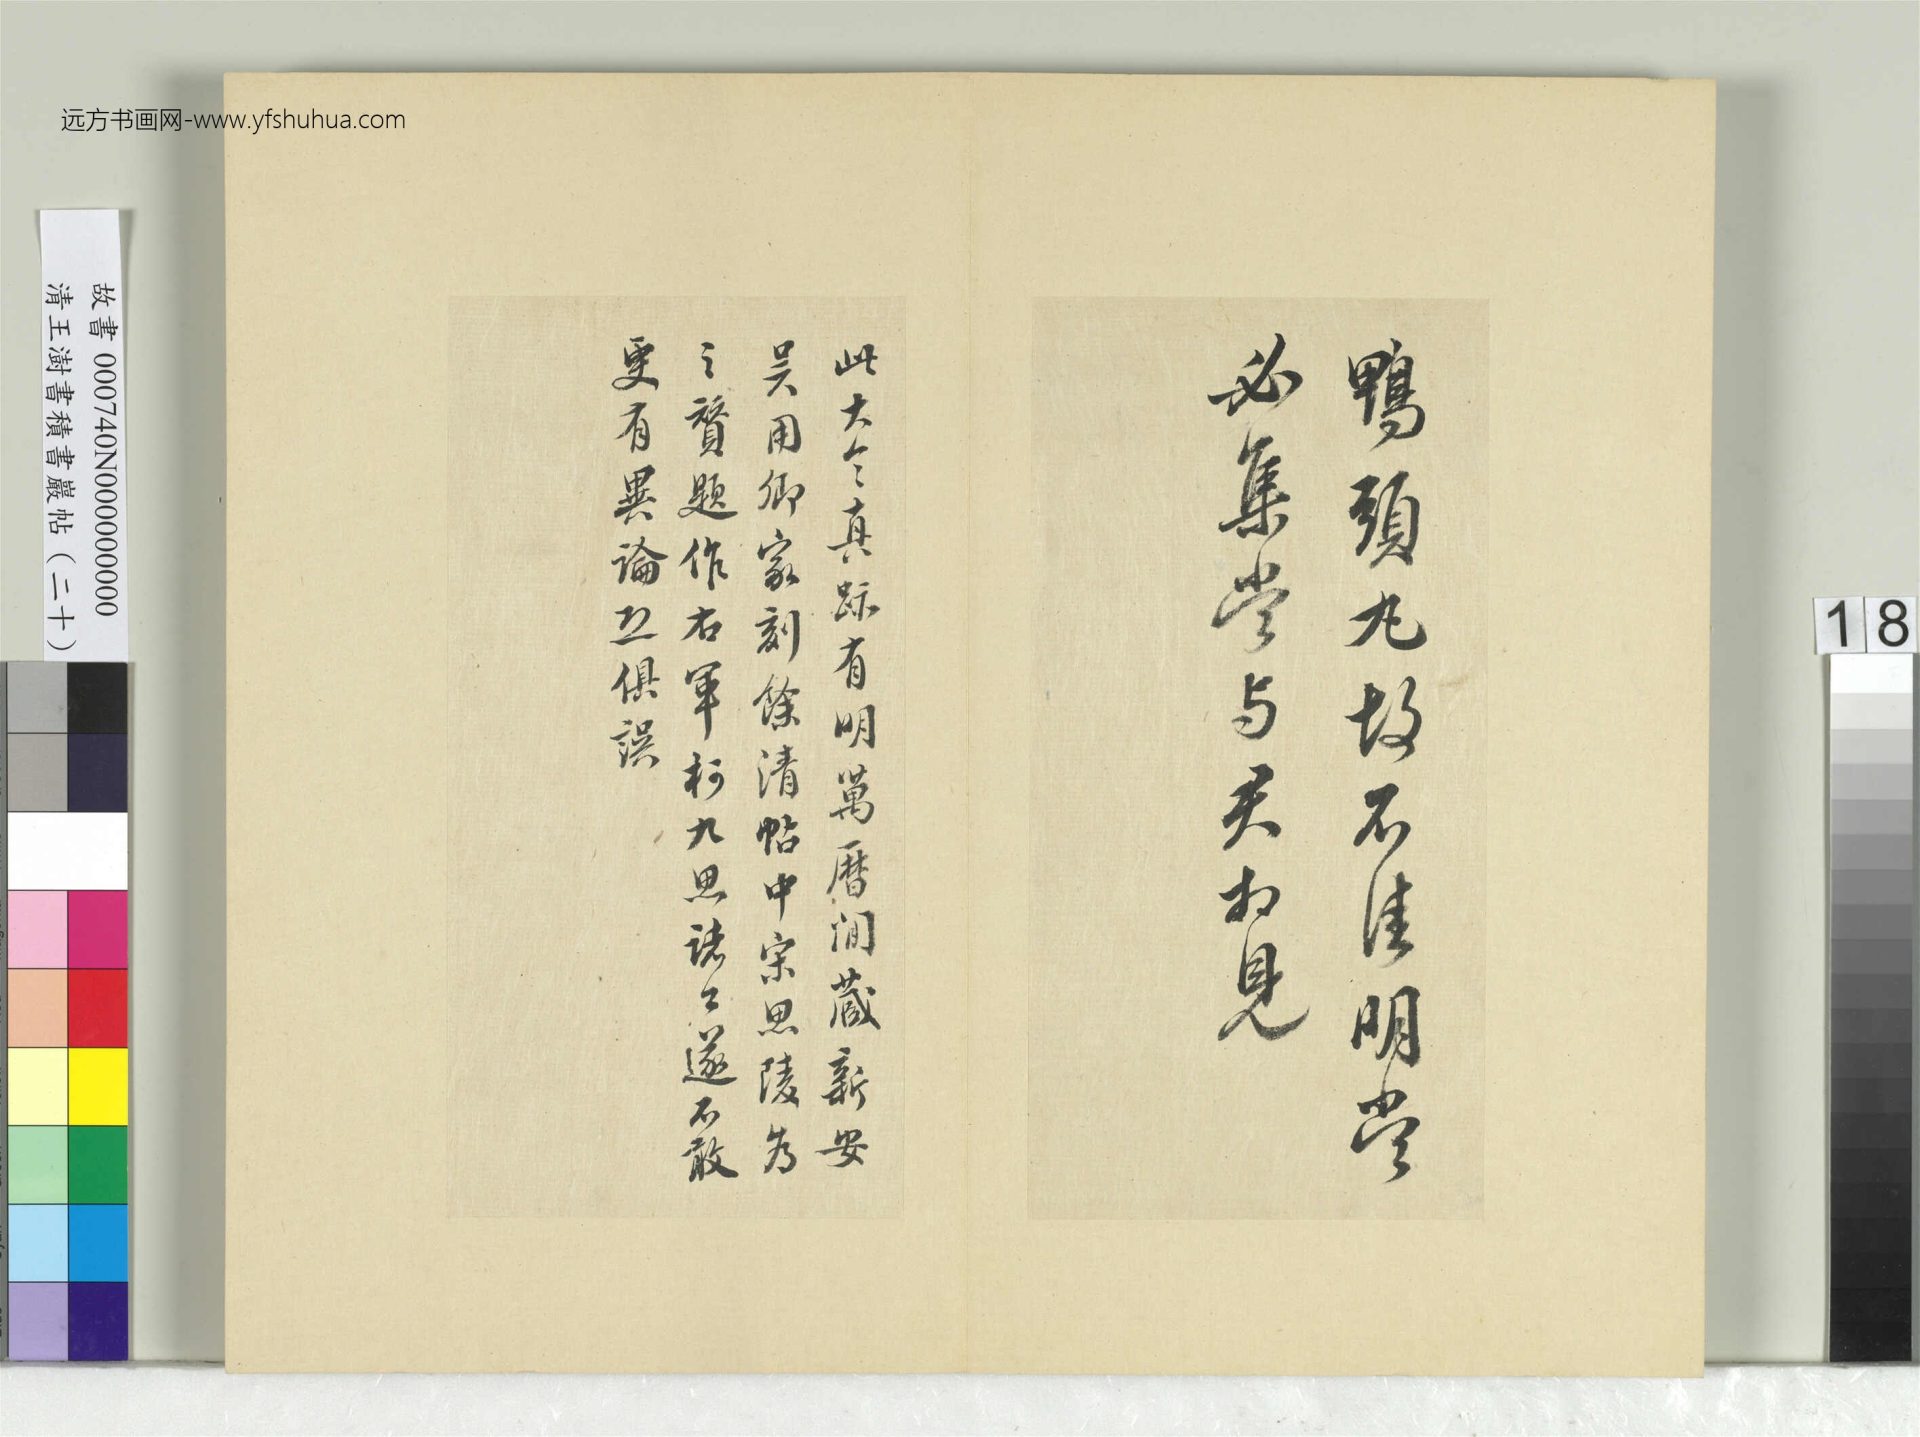 鴨頭丸故不佳明當
必集當与君相見
此大令真跡有明萬曆間藏新安
吴用卿家刻餘清帖中宋思陵為
之贊題作右軍柯九思諸公遂不敢
更有異論並俱誤
远方书画网-www.yfshuhua.com
故書 000740N000000000
清王澍書積書巖帖（二十）
18